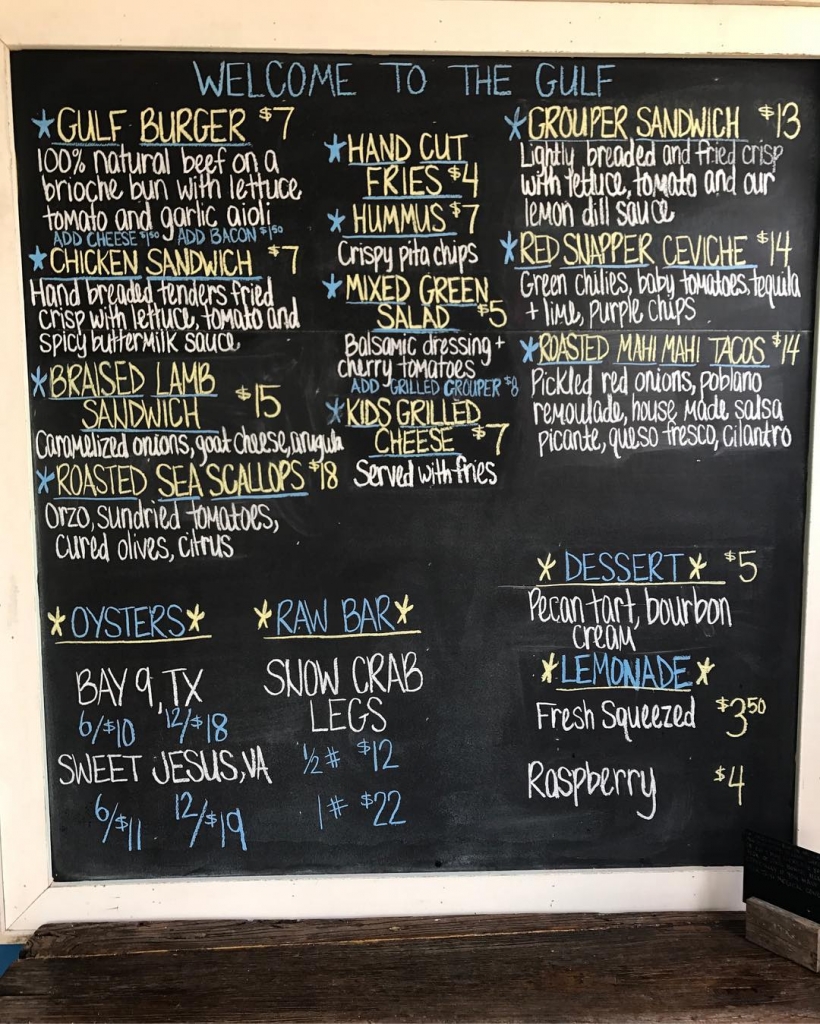 WELCOME TO THE GULF
*GULF BURGER $7
100% natural beef on a
brioche bun with lettuce
tomato and garlic aioli
ADD CHEESE $1.50 ADD BACON $1.50
*CHICKEN SANDWICH $7
Hand breaded tenders fried
crisp with lettuce, tomato and
spicy buttermilk sauce
*BRAISED LAMB
SANDWICH $15
Caramelized onions, goat cheese, arugula
*ROASTED SEA SCALLOPS $18
Orzo, sundried tomatoes,
cured olives, citrus
*HAND CUT
FRIES $4
*HUMMUS $7
Crispy pita chips
*MIXED GREEN
SALAD $5
Balsamic dressing +
cherry tomatoes
ADD GRILLED GROUPER $8
*KIDS GRILLED
CHEESE $7
Served with fries
*GROUPER SANDWICH $13
Lightly breaded and fried crisp
with lettuce, tomato and our
lemon dill sauce
*RED SNAPPER CEVICHE $14
Green chilies, baby tomatoes, tequila
+ lime, purple chips
*ROASTED MAHI MAHI TACOS $14
Pickled red onions, poblano
remoulade, house made salsa
picante, queso fresco, cilantro
*OYSTERS*
BAY 9, TX
6/$10 12/$18
SWEET JESUS, VA
6/$11 12/$19
*RAW BAR*
SNOW CRAB
LEGS
1/2 # $12
1 # $22
*DESSERT* $5
Pecan tart, bourbon
cream
*LEMONADE*
Fresh Squeezed $3.50
Raspberry $4